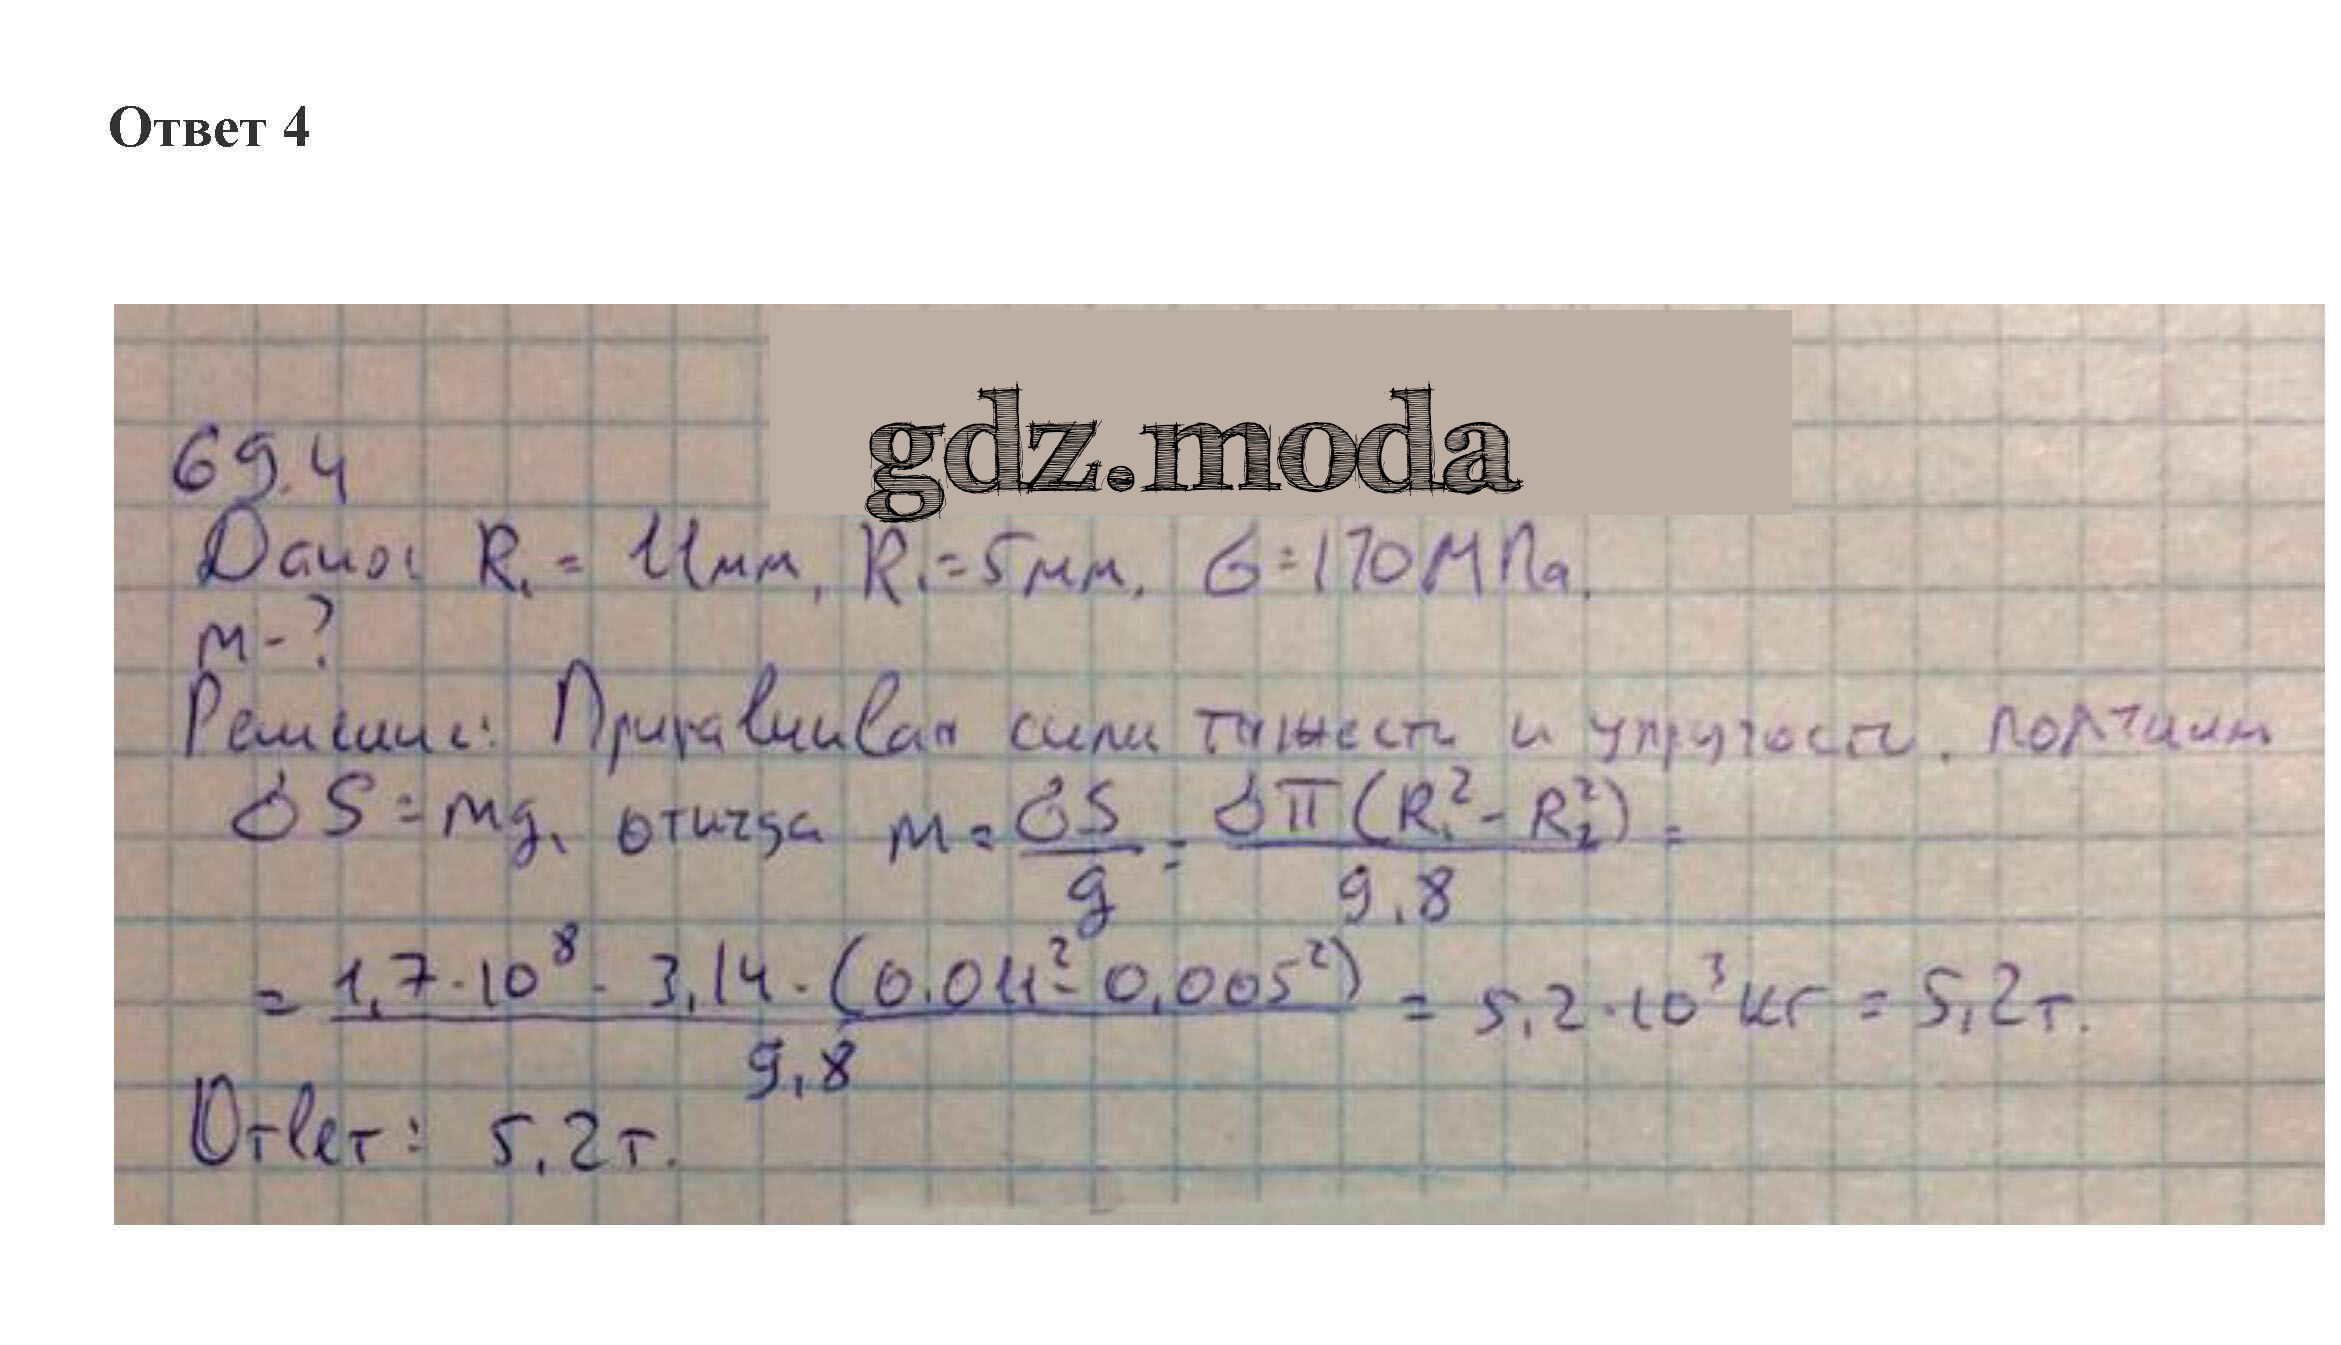 Ответ 4
gdz.moda
69.4
Дано: R₁ = 11мм, R₁ = 5мм, σ = 170МПа.
m - ?
Решение: Приравнивая силы тяжести и упругости, получим
σS = mg, откуда m = σS/g = σπ(R₁² - R₂²)/9,8 =
= 1,7·10⁸ · 3,14 · (0,011² - 0,005²)/9,8 = 5,2·10³ кг = 5,2т.
Ответ: 5,2т.